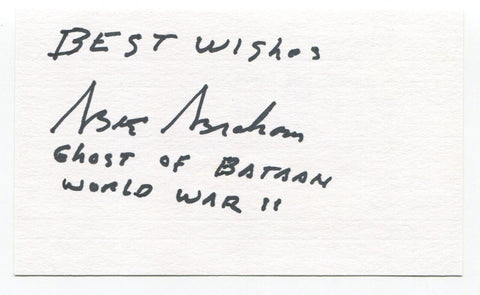 BEST WISHES
Abie Abraham
GHOST OF BATAAN
WORLD WAR II